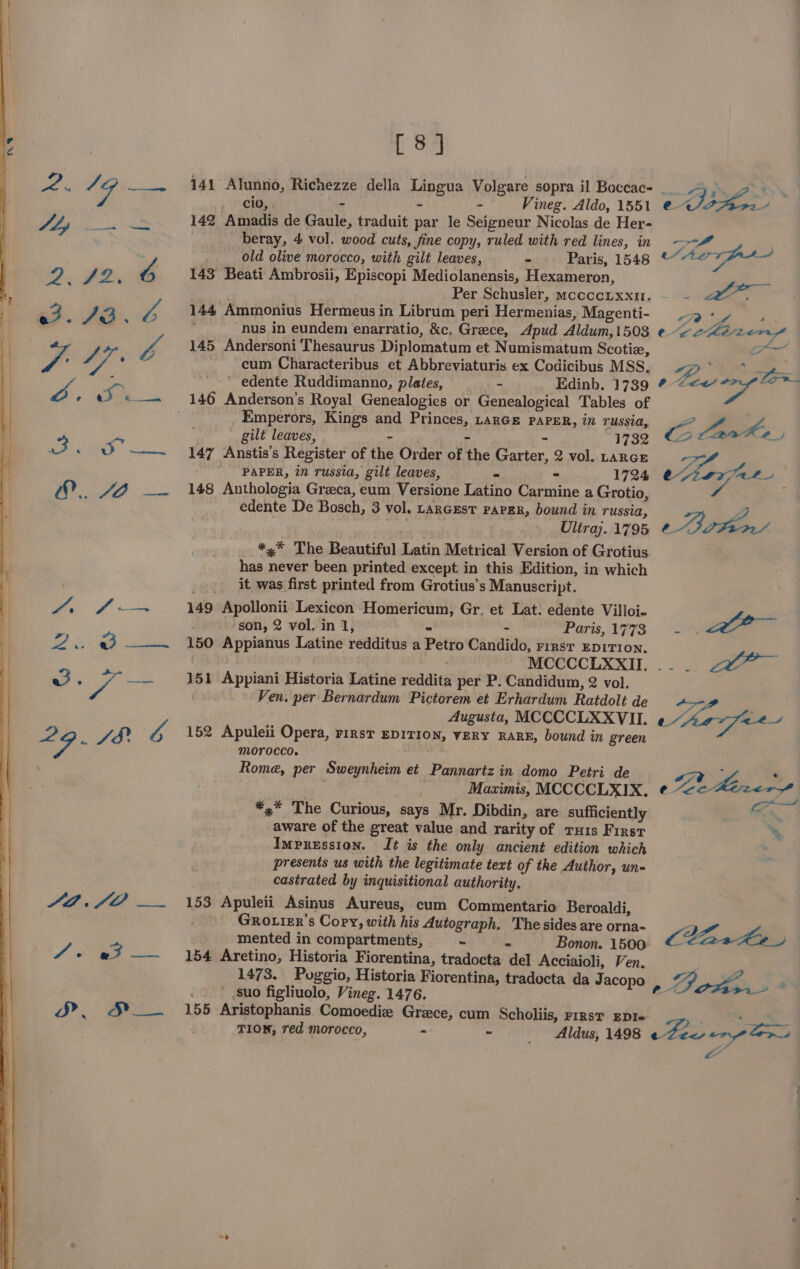 [ 8 ]
2. 19 — 141 Alunno, Richezze della Lingua Volgare sopra il Boccac-
cio, - - - Vineg. Aldo, 1551
142 Amadis de Gaule, traduit par le Seigneur Nicolas de Her-
beray, 4 vol. wood cuts, fine copy, ruled with red lines, in
old olive morocco, with gilt leaves, - Paris, 1548
2. 12. 6 143 Beati Ambrosii, Episcopi Mediolanensis, Hexameron,
Per Schusler, MCCCCLXXII.
3. 13. 6 144 Ammonius Hermeus in Librum peri Hermenias, Magenti-
nus in eundem enarratio, &c. Græce, Apud Aldum, 1503
7. 17. 6 145 Andersoni Thesaurus Diplomatum et Numismatum Scotiæ,
cum Characteribus et Abbreviaturis ex Codicibus MSS.
edente Ruddimanno, plates, - Edinb. 1739
6. 8 — 146 Anderson's Royal Genealogies or Genealogical Tables of
Emperors, Kings and Princes, LARGE PAPER, in russia,
gilt leaves, - - - 1732 Clarke
3. 5 — 147 Anstis's Register of the Order of the Garter, 2 vol. LARGE
PAPER, in russia, gilt leaves, - - 1724
8. 10 — 148 Anthologia Græca, cum Versione Latino Carmine a Grotio,
edente De Bosch, 3 vol. LARGEST PAPER, bound in russia,
Ultraj. 1795
*** The Beautiful Latin Metrical Version of Grotius
has never been printed except in this Edition, in which
it was first printed from Grotius's Manuscript.
1. 1 — 149 Apollonii Lexicon Homericum, Gr. et Lat. edente Villoi-
son, 2 vol. in 1, - - Paris, 1773
2. 3 — 150 Appianus Latine redditus a Petro Candido, FIRST EDITION.
MCCCCLXXII.
3. 7 — 151 Appiani Historia Latine reddita per P. Candidum, 2 vol.
Ven. per Bernardum Pictorem et Erhardum Ratdolt de
Augusta, MCCCCLXXVII.
29. 18 6 152 Apuleii Opera, FIRST EDITION, VERY RARE, bound in green
morocco.
Romæ, per Sweynheim et Pannartz in domo Petri de
Maximis, MCCCCLXIX.
*** The Curious, says Mr. Dibdin, are sufficiently
aware of the great value and rarity of THIS FIRST
IMPRESSION. It is the only ancient edition which
presents us with the legitimate text of the Author, un-
castrated by inquisitional authority.
10. 10 — 153 Apuleii Asinus Aureus, cum Commentario Beroaldi,
GROLIER's COPY, with his Autograph. The sides are orna-
mented in compartments, - - Bonon. 1500 Clarke
1. 3 — 154 Aretino, Historia Fiorentina, tradocta del Acciaioli, Ven.
1473. Poggio, Historia Fiorentina, tradocta da Jacopo
suo figliuolo, Vineg. 1476.
8. 8 — 155 Aristophanis Comoediæ Græce, cum Scholiis, FIRST EDI-
TION, red morocco, - - Aldus, 1498